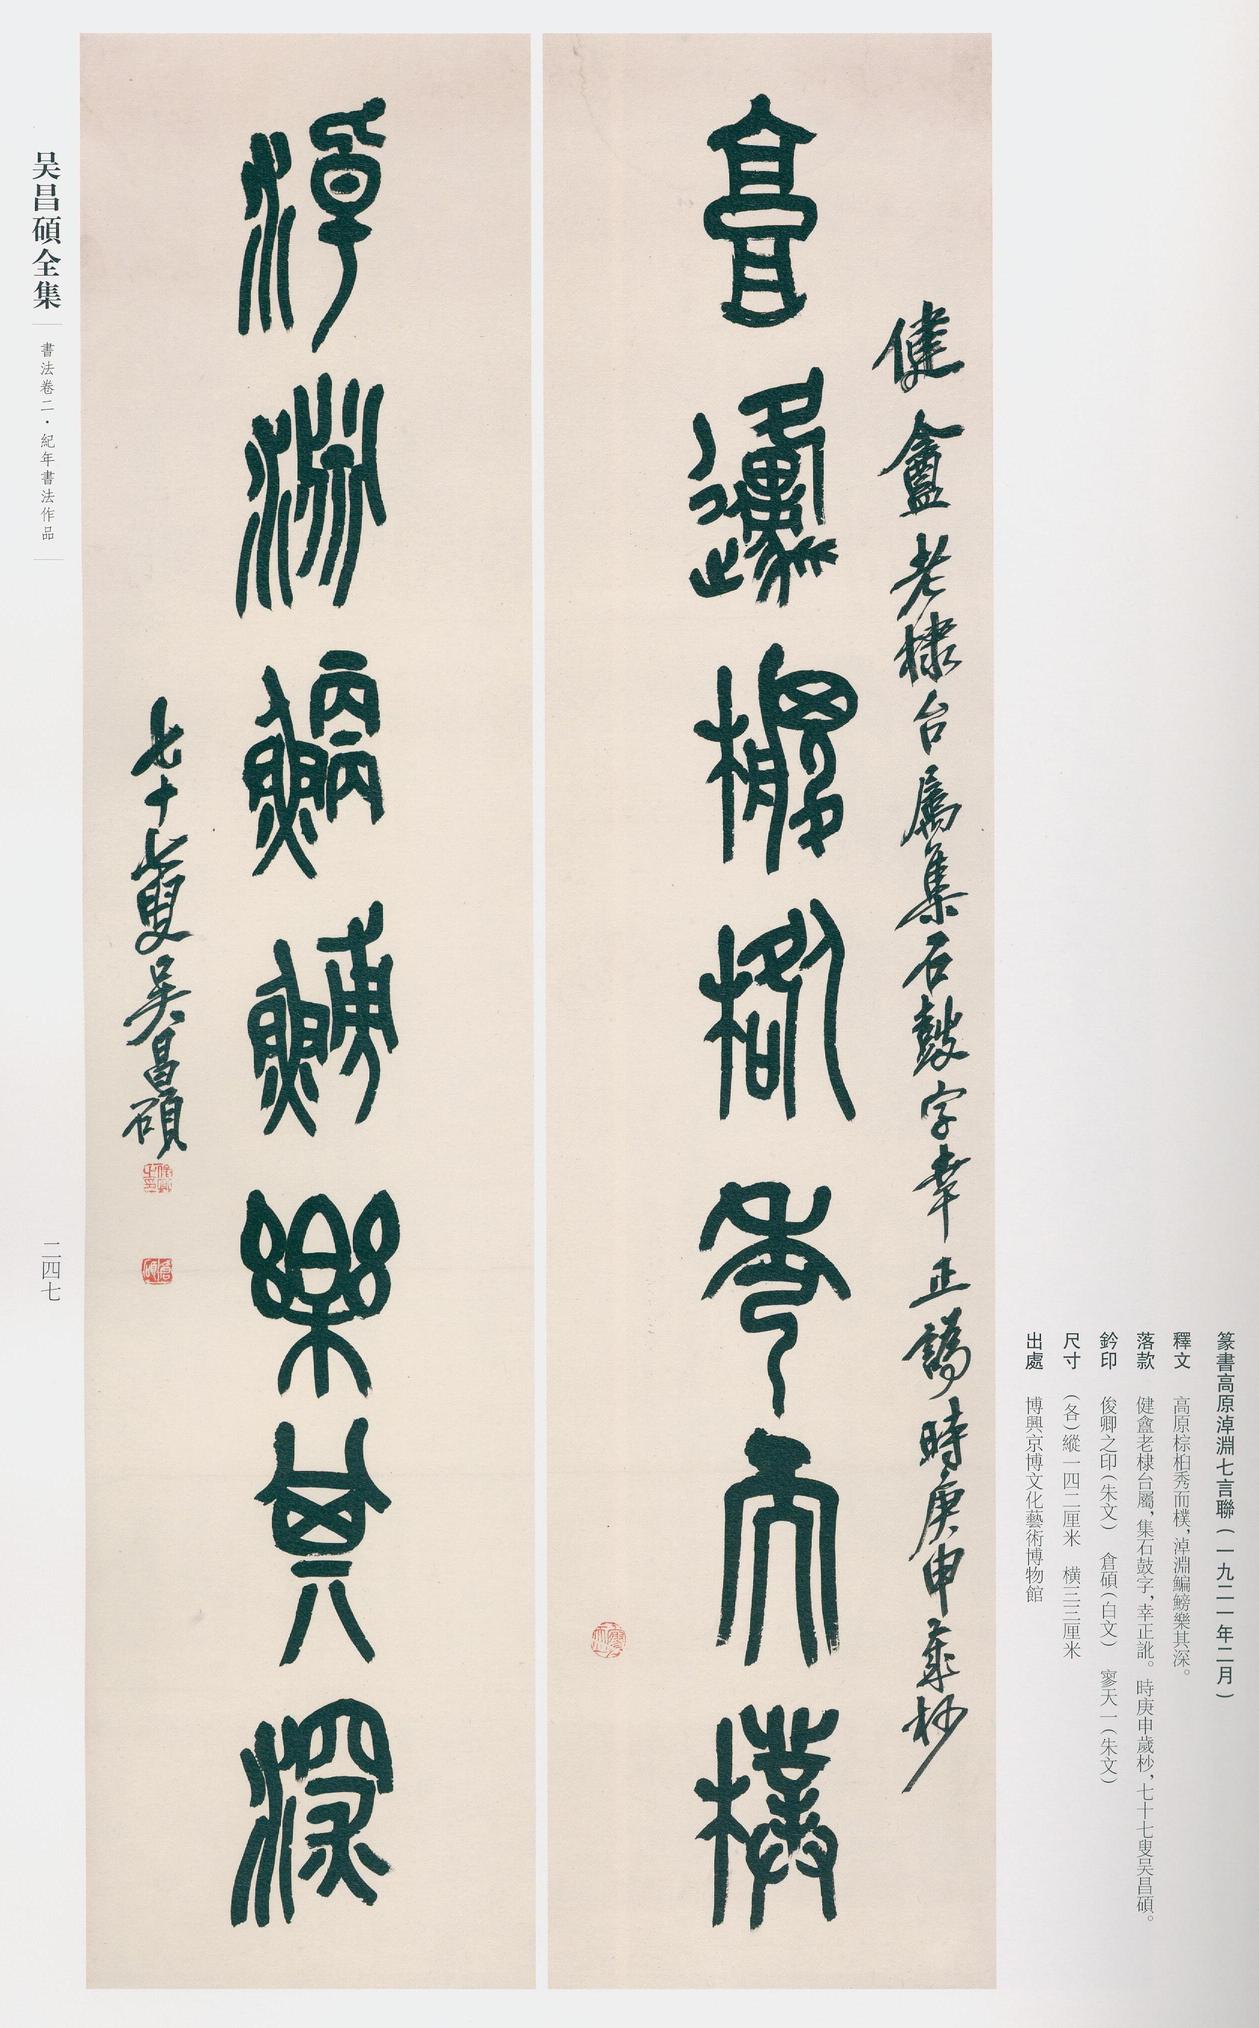 篆書高原淖淵七言聯（一九二一年二月）
釋文　高原棕桕秀而樸，淖淵鯿鰟樂其深。
落款　健盦老棣台屬，集石鼓字，幸正訛。時庚申歲杪，七十七叟吴昌碩。
鈐印　俊卿之印（朱文）　倉碩（白文）　寥天一（朱文）
尺寸　（各）縱一四二厘米　橫三三厘米
出處　博興京博文化藝術博物館
健盦老棣台屬集石鼓字幸正譌時庚申歲杪
高原棕桕秀而樸
寥天一
淖淵鯿鰟樂其深
七十七叟吴昌碩
俊卿之印
倉碩
吴昌碩全集
書法卷二·紀年書法作品
二四七